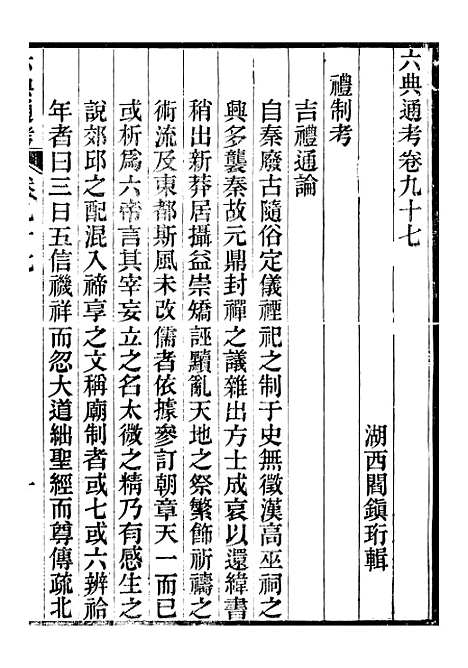 六典通考卷九十七
湖西閻鎮珩輯
禮制考
吉禮通論
自秦廢古隨俗定儀禋祀之制于史無徵漢高巫祠之
興多襲秦故元鼎封禪之議雜出方士成哀以還緯書
稍出新莽居攝益崇矯誣黷亂天地之祭繁飾祈禱之
術流及東都斯風未改儒者依據參訂朝章天一而已
或析為六帝言其宰妄立之名太微之精乃有感生之
說郊邱之配混入禘享之文稱廟制者或七或六辨祫
年者曰三曰五信禨祥而忽大道絀聖經而尊傳疏北
六典通考
卷九十七
一